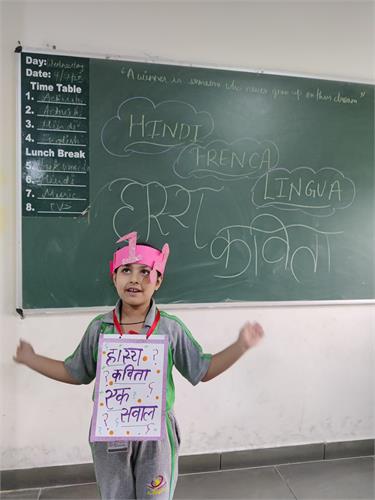 Day: Wednesday
Date:
Time Table
1.
2.
3. Hindi
4. English
Lunch Break
5.
6. Hindi
7. Music
8. EVS
"A winner is someone who never gives up on their dream"
HINDI
FRENCA
LINGUA
हास्य
कविता
हास्य
कविता
एक
सवाल